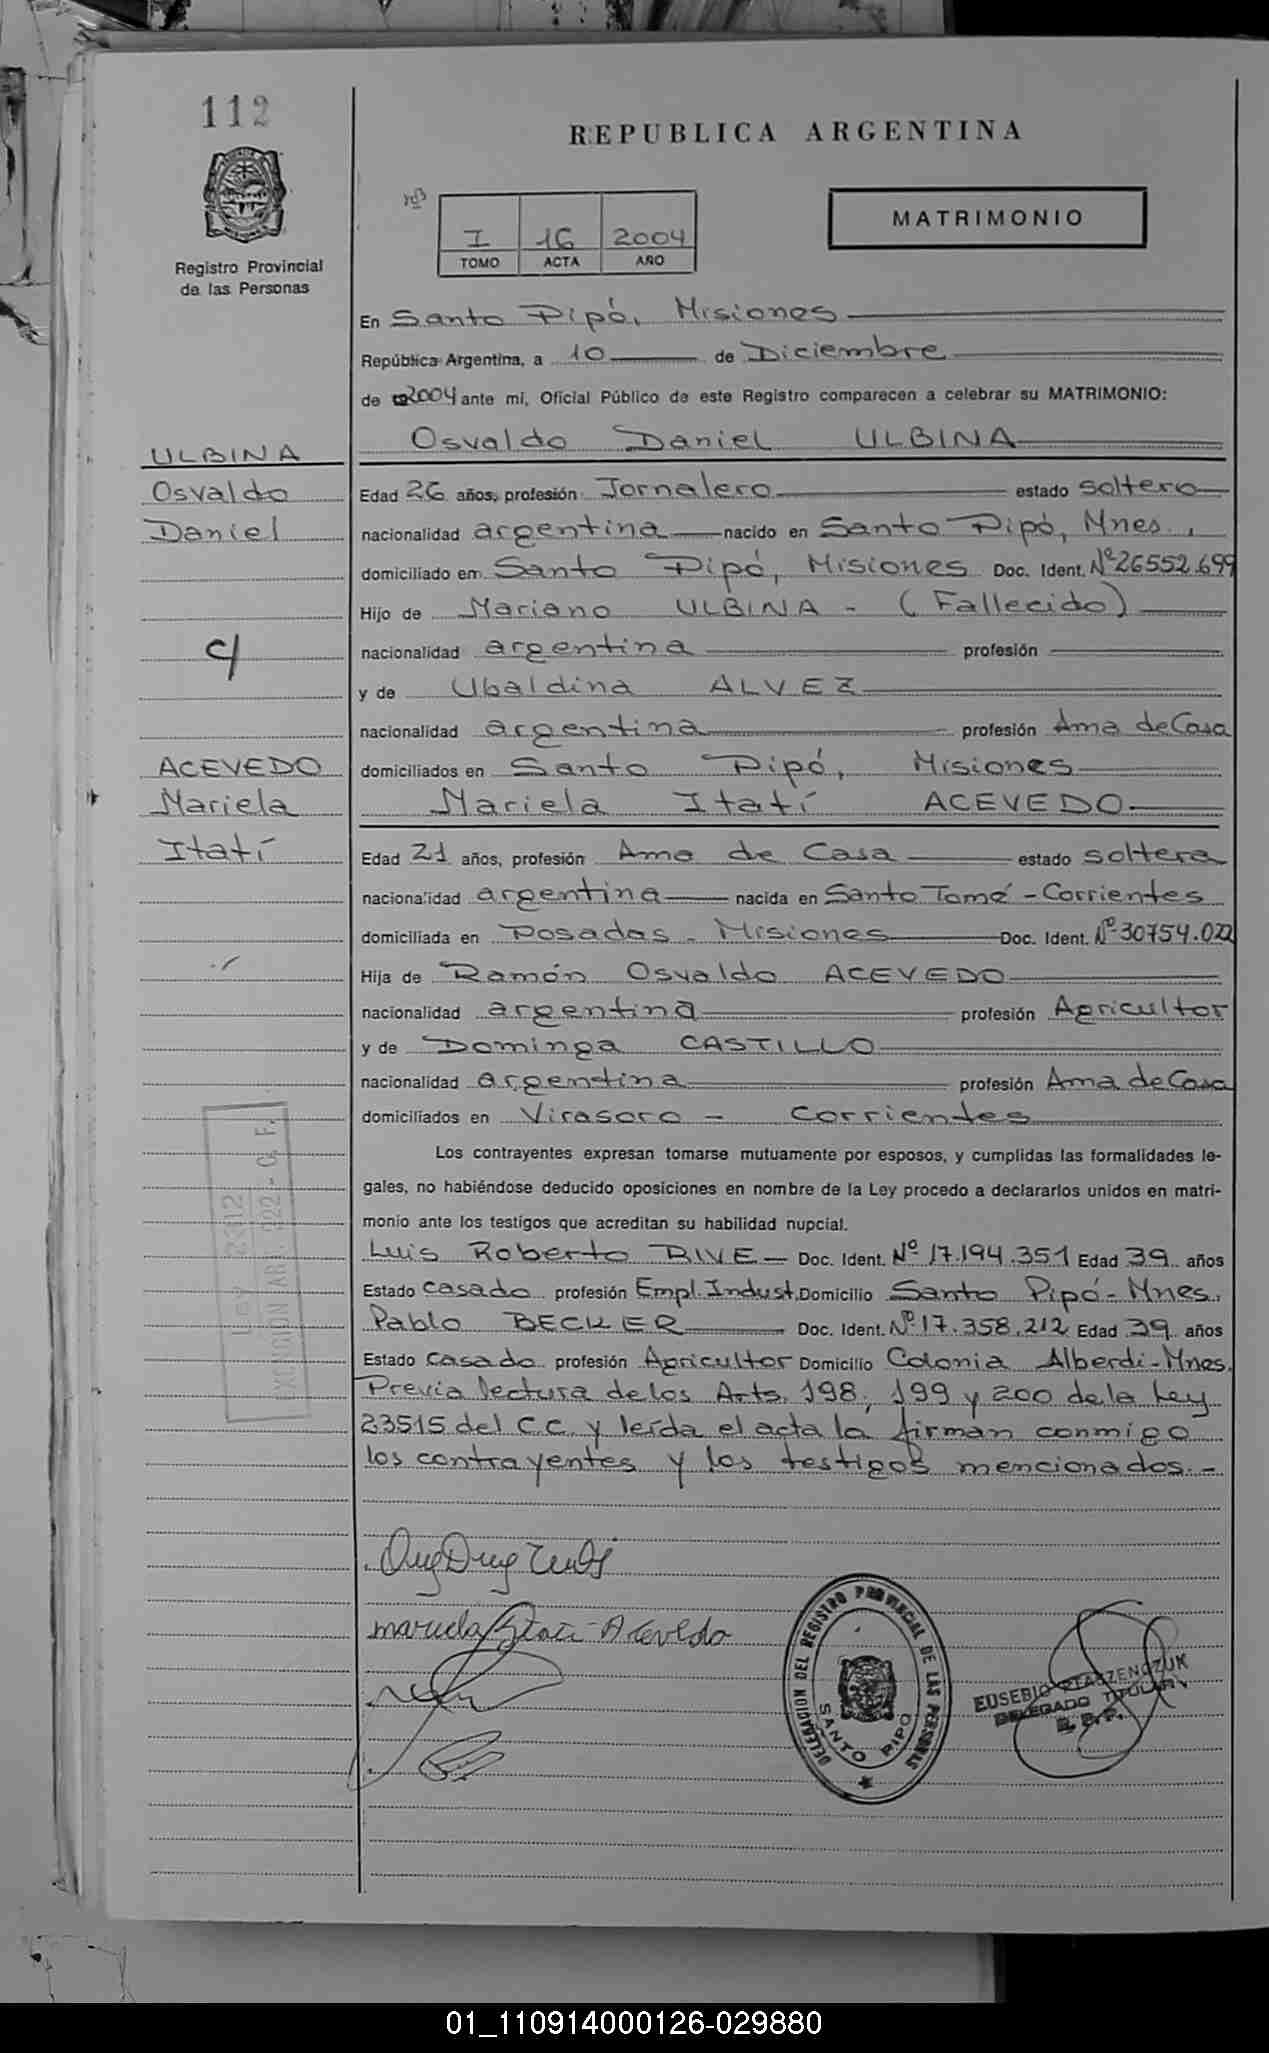 112
Registro Provincial
de las Personas
REPUBLICA ARGENTINA
I 16 2004
TOMO ACTA AÑO
MATRIMONIO
En Santo Pipó, Misiones
República Argentina, a 10 de Diciembre
de 2004 ante mi, Oficial Público de este Registro comparecen a celebrar su MATRIMONIO:
Osvaldo Daniel ULBINA
ULBINA
Osvaldo
Daniel
c/
ACEVEDO
Mariela
Itatí
Edad 26 años, profesión Jornalero estado soltero
nacionalidad argentina nacido en Santo Pipó, Mnes.,
domiciliado en Santo Pipó, Misiones Doc. Ident. Nº 26552.699
Hijo de Mariano ULBINA - (Fallecido)
nacionalidad argentina profesión
y de Ubaldina ALVEZ
nacionalidad argentina profesión Ama de Casa
domiciliados en Santo Pipó, Misiones
Mariela Itatí ACEVEDO
Edad 21 años, profesión Ama de Casa estado soltera
nacionalidad argentina nacida en Santo Tomé - Corrientes
domiciliada en Posadas - Misiones Doc. Ident. Nº 30754.022
Hija de Ramón Osvaldo ACEVEDO
nacionalidad argentina profesión Agricultor
y de Dominga CASTILLO
nacionalidad argentina profesión Ama de Casa
domiciliados en Virasoro - Corrientes
Los contrayentes expresan tomarse mutuamente por esposos, y cumplidas las formalidades le-
gales, no habiéndose deducido oposiciones en nombre de la Ley procedo a declararlos unidos en matri-
monio ante los testigos que acreditan su habilidad nupcial.
Luis Roberto RIVE - Doc. Ident. Nº 17.194.351 Edad 39 años
Estado casado profesión Empl. Indust. Domicilio Santo Pipó - Mnes.
Pablo BECKER Doc. Ident. Nº 17.358.212 Edad 39 años
Estado casado profesión Agricultor Domicilio Colonia Alberdi - Mnes.
Previa lectura de los Arts. 198, 199 y 200 de la Ley
23515 del C.C. y leída el acta la firman conmigo
los contrayentes y los testigos mencionados.-
Mariela Itatí Acevedo
DELEGACION DEL REGISTRO PROVINCIAL DE LAS PERSONAS
SANTO PIPO
EUSEBIO
DELEGADO TITULAR
01_110914000126-029880